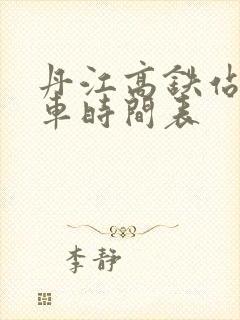 丹江高鉄站
車時間表
李静